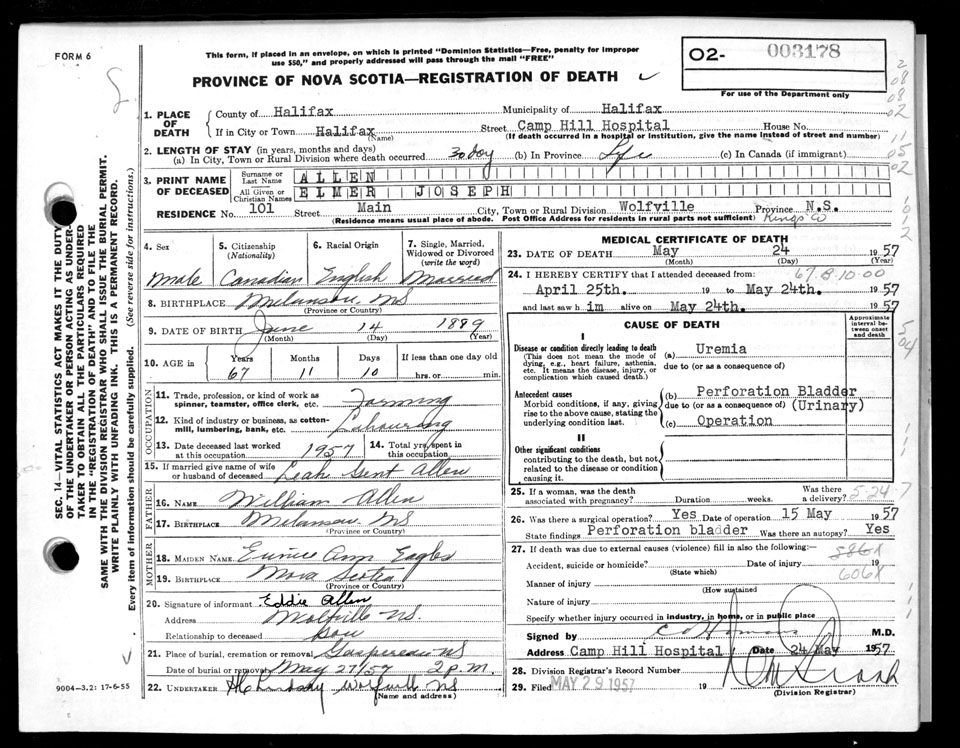 FORM 6
This form, if placed in an envelope, on which is printed "Dominion Statistics—Free, penalty for improper
use $50," and properly addressed will pass through the mail "FREE"
PROVINCE OF NOVA SCOTIA—REGISTRATION OF DEATH
O2- 003178
For use of the Department only
1. PLACE OF DEATH
County of Halifax Municipality of Halifax
If in City or Town Halifax (Name) Street Camp Hill Hospital House No.
(If death occurred in a hospital or institution, give the name instead of street and number)
2. LENGTH OF STAY (in years, months and days)
(a) In City, Town or Rural Division where death occurred 30 day (b) In Province Life (c) In Canada (if immigrant)
3. PRINT NAME OF DECEASED
Surname or Last Name ALLEN
All Given or Christian Names ELMER JOSEPH
RESIDENCE No. 101 Street Main City, Town or Rural Division Wolfville Province N.S.
(Residence means usual place of abode. Post Office Address for residents in rural parts not sufficient) Kings Co
4. Sex 5. Citizenship (Nationality) 6. Racial Origin 7. Single, Married, Widowed or Divorced (write the word)
Male Canadian English Married
8. BIRTHPLACE Melanson NS
(Province or Country)
9. DATE OF BIRTH June 14 1889
(Month) (Day) (Year)
10. AGE IN Years Months Days If less than one day old
67 11 10 hrs. or min.
OCCUPATION
11. Trade, profession, or kind of work as spinner, teamster, office clerk, etc. Farming
12. Kind of industry or business, as cotton-mill, lumbering, bank, etc. Labouring
13. Date deceased last worked at this occupation 1957 14. Total yrs. spent in this occupation
15. If married give name of wife or husband of deceased Leah Gent Allen
FATHER
16. NAME William Allen
17. BIRTHPLACE Melanson NS
(Province or Country)
MOTHER
18. MAIDEN NAME Eunice Ann Eagles
19. BIRTHPLACE Nova Scotia
(Province or Country)
20. Signature of informant Eddie Allen
Address Wolfville NS.
Relationship to deceased Son
21. Place of burial, cremation or removal Gaspereau NS
Date of burial or removal May 27/57 2 P.M.
22. UNDERTAKER Lindsay Wolfville NS
(Name and address)
9004—3.2: 17-6-55
SEC. 14—VITAL STATISTICS ACT MAKES IT THE DUTY
OF THE UNDERTAKER OR PERSON ACTING AS UNDER-
TAKER TO OBTAIN ALL THE PARTICULARS REQUIRED
IN THE "REGISTRATION OF DEATH" AND TO FILE THE
SAME WITH THE DIVISION REGISTRAR WHO SHALL ISSUE THE BURIAL PERMIT.
WRITE PLAINLY WITH UNFADING INK. THIS IS A PERMANENT RECORD.
Every item of information should be carefully supplied. (See reverse side for instructions.)
MEDICAL CERTIFICATE OF DEATH
23. DATE OF DEATH May 24 1957
(Month) (Day) (Year)
24. I HEREBY CERTIFY that I attended deceased from: 67.8.10-00
April 25th. 19 to May 24th. 1957
and last saw him alive on May 24th. 1957
CAUSE OF DEATH
Approximate interval between onset and death
I
Disease or condition directly leading to death
(This does not mean the mode of dying, e.g., heart failure, asthenia, etc. It means the disease, injury, or complication which caused death.)
(a) Uremia
due to (or as a consequence of)
Antecedent causes
Morbid conditions, if any, giving rise to the above cause, stating the underlying condition last.
(b) Perforation Bladder
due to (or as a consequence of) (Urinary)
(c) Operation
II
Other significant conditions
contributing to the death, but not related to the disease or condition causing it.
25. If a woman, was the death associated with pregnancy? Duration weeks. Was there a delivery? 5-24-7
26. Was there a surgical operation? Yes Date of operation 15 May 1957
State findings Perforation bladder Was there an autopsy? Yes
27. If death was due to external causes (violence) fill in also the following:— 586X
Accident, suicide or homicide? (State which) Date of injury 19
606X
Manner of injury (How sustained)
Nature of injury
Specify whether injury occurred in industry, in home, or in public place
Signed by M.D.
Address Camp Hill Hospital Date 24 May 1957
28. Division Registrar's Record Number
29. Filed MAY 29 1957 19
(Division Registrar)